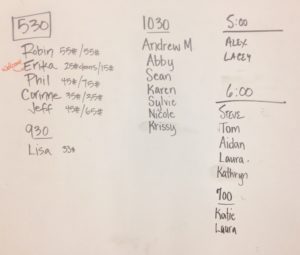 530
Robin 55#/35#
Erika 25#dbns/15#
Phil 45#/75#
Corinne 35#/35#
Jeff 45#/65#
930
Lisa 33#
1030
Andrew M
Abby
Sean
Karen
Sylvie
Nicole
Krissy
5:00
ALEX
LACEY
6:00
STEVE
Tom
Aidan
Laura
Kathryn
700
Katie
Laura